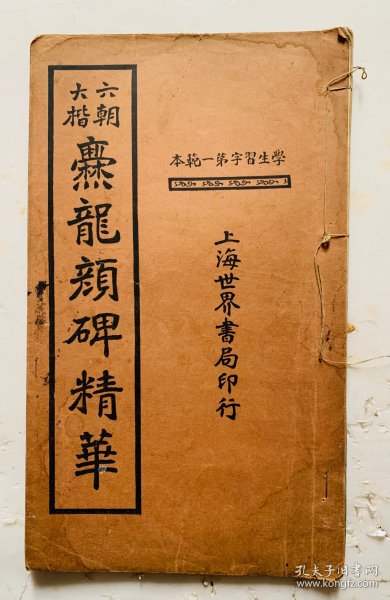 學生習字第一範本
上海世界書局印行
六朝大楷
爨龍顔碑精華
孔夫子旧书网
www.kongfz.com